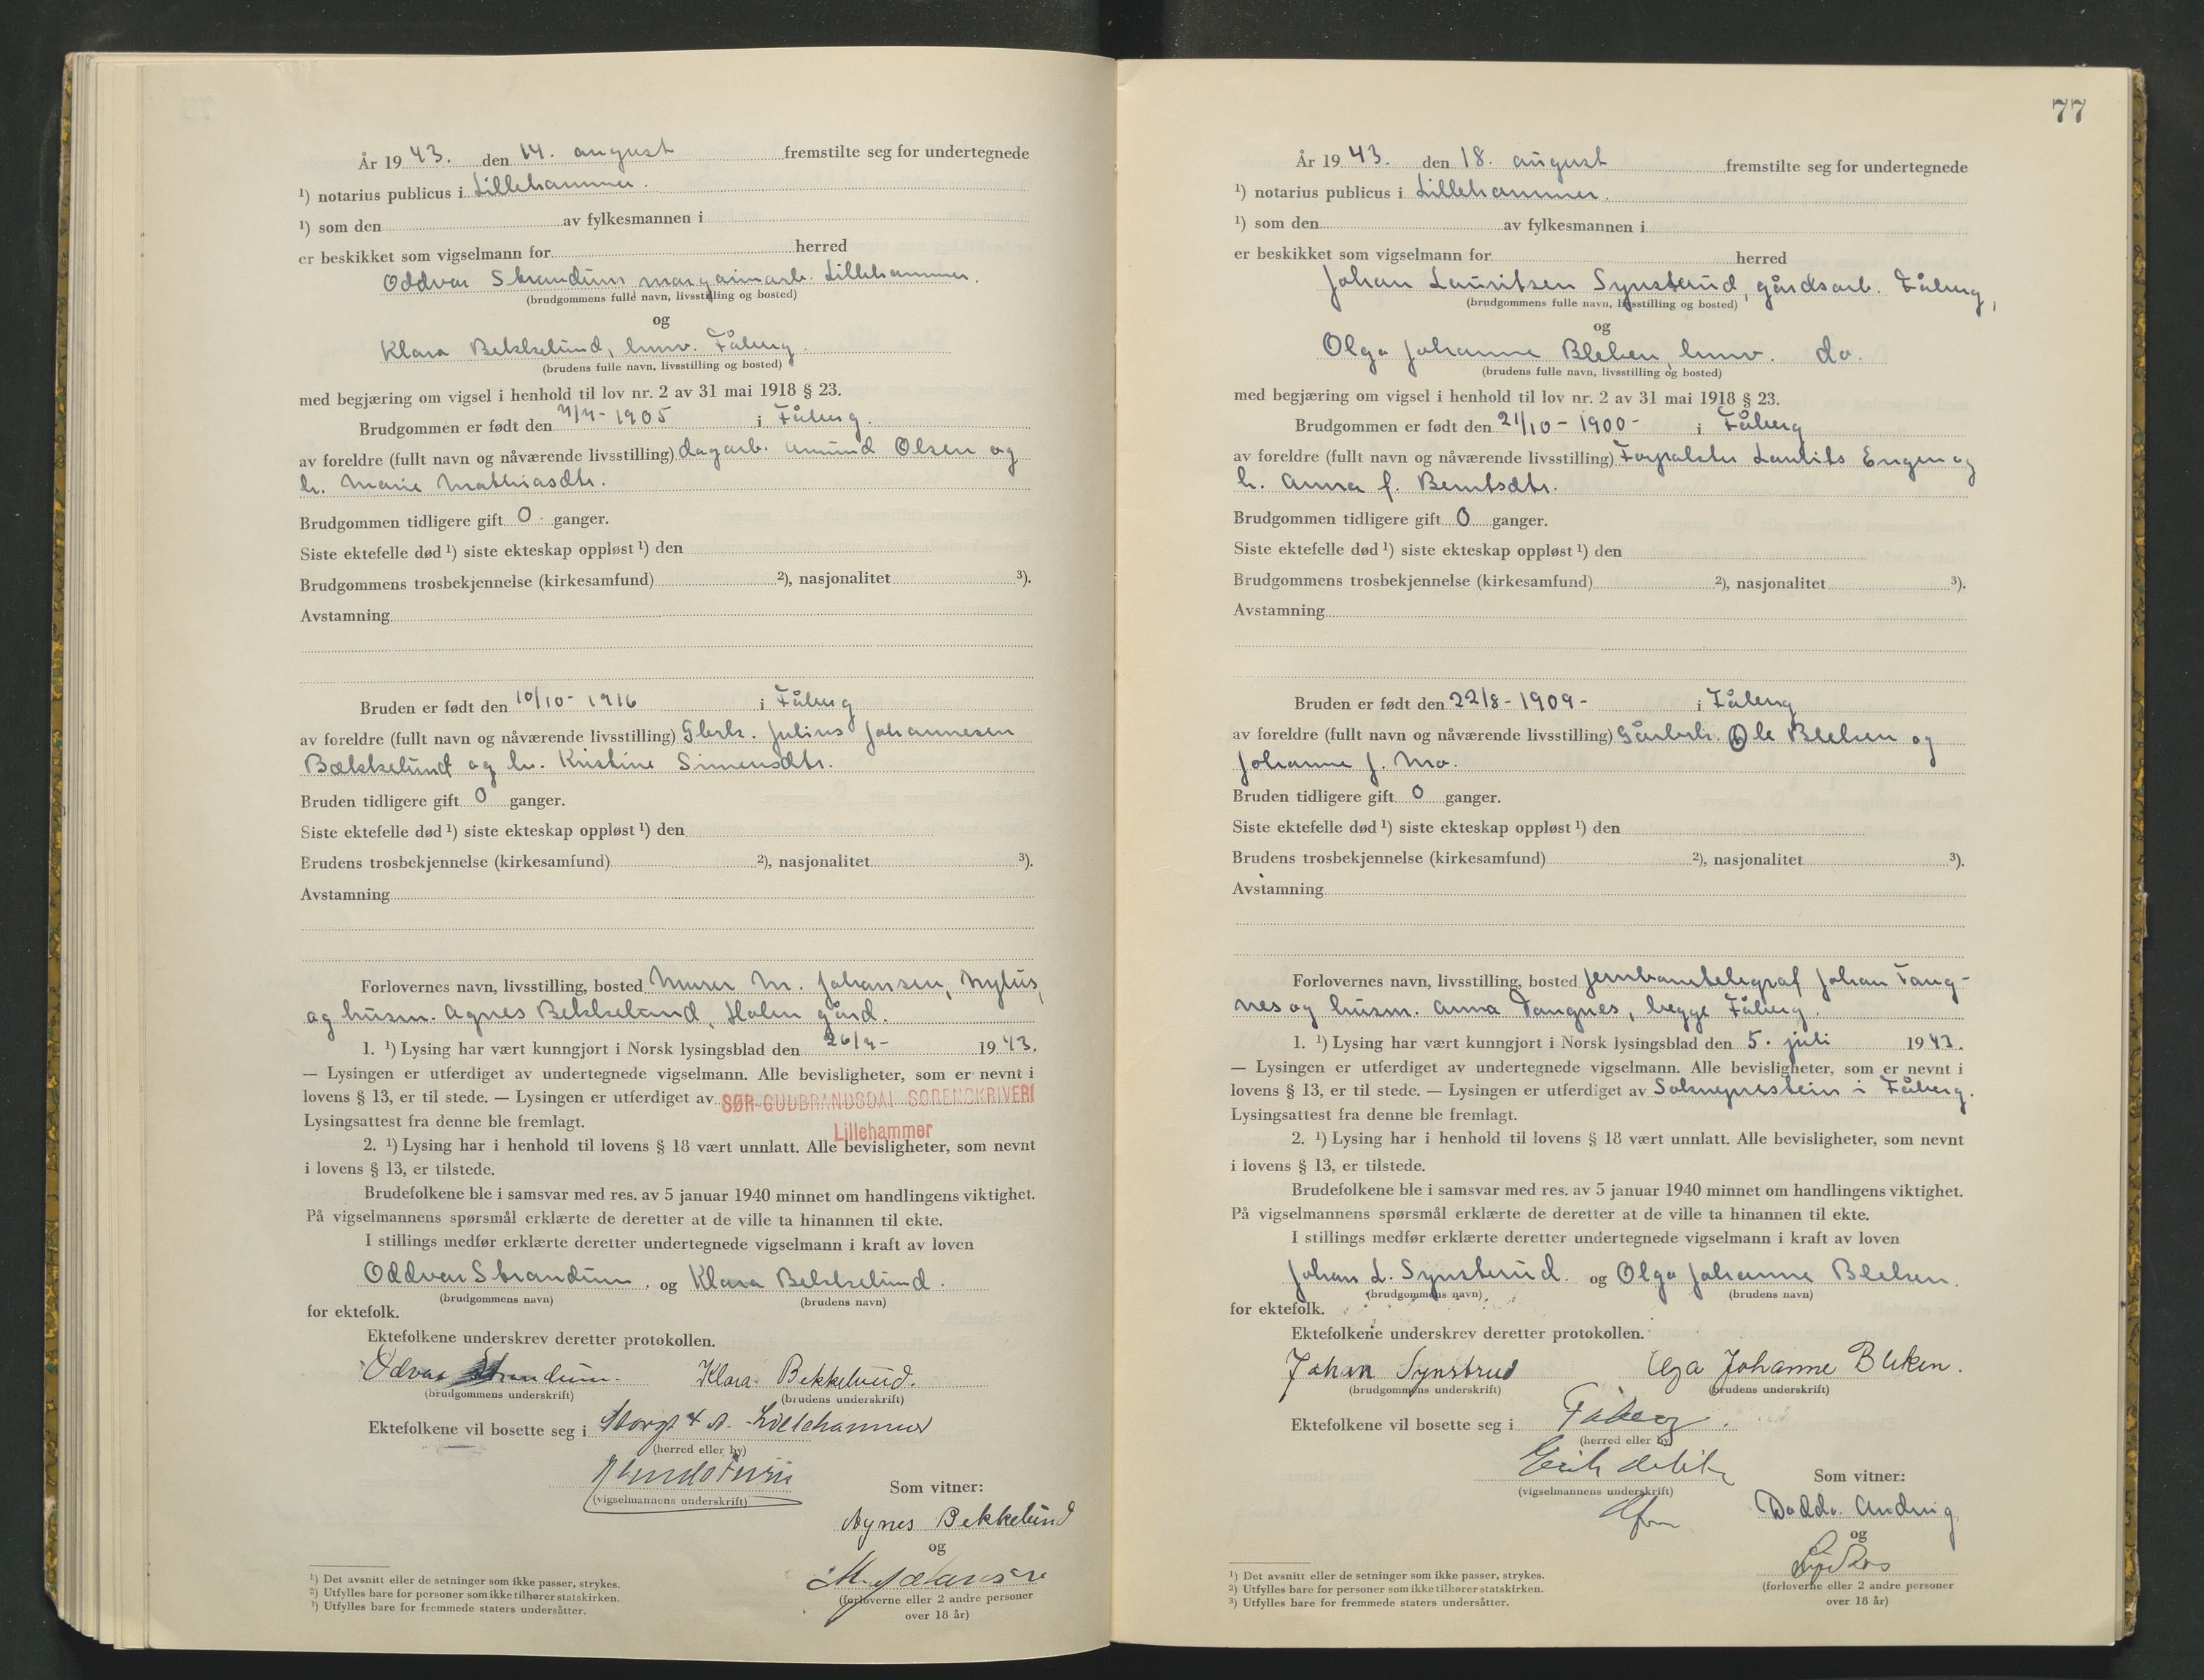 År 19 43. den 14. august fremstilte seg for undertegnede
¹) notarius publicus i Lillehammer.
¹) som den av fylkesmannen i
er beskikket som vigselmann for herred
Oddvar Strandum margarinarb. Lillehammer.
(brudgommens fulle navn, livsstilling og bosted)
og
Klara Bekkelund, husv. Fåberg.
(brudens fulle navn, livsstilling og bosted)
med begjæring om vigsel i henhold til lov nr. 2 av 31 mai 1918 § 23.
Brudgommen er født den 4/4 - 1905 i Fåberg.
av foreldre (fullt navn og nåværende livsstilling) dagarb. Amund Olsen og
h. Marie Mathiasdtr.
Brudgommen tidligere gift 0 ganger.
Siste ektefelle død ¹) siste ekteskap oppløst ¹) den
Brudgommens trosbekjennelse (kirkesamfund) ²), nasjonalitet ³).
Avstamning
Bruden er født den 10/10 - 1916 i Fåberg
av foreldre (fullt navn og nåværende livsstilling) Gbrk. Julius Johannesen
Bækkelund og h. Kristine Simensdtr.
Bruden tidligere gift 0 ganger.
Siste ektefelle død ¹) siste ekteskap oppløst ¹) den
Brudens trosbekjennelse (kirkesamfund) ²), nasjonalitet ³).
Avstamning
Forlovernes navn, livsstilling, bosted Murer M. Johansen, Nyhus,
og husm. Agnes Bekkelund, Holen gård.
1. ¹) Lysing har vært kunngjort i Norsk lysingsblad den 26/4 - 19 43.
— Lysingen er utferdiget av undertegnede vigselmann. Alle bevisligheter, som er nevnt i
lovens § 13, er til stede. — Lysingen er utferdiget av SØR-GUDBRANDSDAL SORENSKRIVERI
Lysingsattest fra denne ble fremlagt.
Lillehammer
2. ¹) Lysing har i henhold til lovens § 18 vært unnlatt. Alle bevisligheter, som nevnt
i lovens § 13, er tilstede.
Brudefolkene ble i samsvar med res. av 5 januar 1940 minnet om handlingens viktighet.
På vigselmannens spørsmål erklærte de deretter at de ville ta hinannen til ekte.
I stillings medfør erklærte deretter undertegnede vigselmann i kraft av loven
Oddvar Strandum. og Klara Bekkelund.
(brudgommens navn) (brudens navn)
for ektefolk.
Ektefolkene underskrev deretter protokollen.
Odvar Strandum. Klara Bekkelund.
(brudgommens underskrift) (brudens underskrift)
Ektefolkene vil bosette seg i Storgt 4 A. Lillehammer
(herred eller by)
(vigselmannens underskrift)
Som vitner:
Agnes Bekkelund
og
M. Johansen
(forloverne eller 2 andre personer
over 18 år)
¹) Det avsnitt eller de setninger som ikke passer, strykes.
²) Utfylles bare for personer som ikke tilhører statskirken.
³) Utfylles bare for fremmede staters undersåtter.
77
År 19 43. den 18. august fremstilte seg for undertegnede
¹) notarius publicus i Lillehammer.
¹) som den av fylkesmannen i
er beskikket som vigselmann for herred
Johan Lauritsen Synsterud, gårdsarb. Fåberg,
(brudgommens fulle navn, livsstilling og bosted)
og
Olga Johanne Bleken, husv. do.
(brudens fulle navn, livsstilling og bosted)
med begjæring om vigsel i henhold til lov nr. 2 av 31 mai 1918 § 23.
Brudgommen er født den 21/10 - 1900 - i Fåberg
av foreldre (fullt navn og nåværende livsstilling) Forpakter Laurits Engen og
h. Anna f. Berntsdtr.
Brudgommen tidligere gift 0 ganger.
Siste ektefelle død ¹) siste ekteskap oppløst ¹) den
Brudgommens trosbekjennelse (kirkesamfund) ²), nasjonalitet ³).
Avstamning
Bruden er født den 22/8 - 1909 - i Fåberg
av foreldre (fullt navn og nåværende livsstilling) Gårbrk. Ole Bleken og
Johanne J. Mo.
Bruden tidligere gift 0 ganger.
Siste ektefelle død ¹) siste ekteskap oppløst ¹) den
Brudens trosbekjennelse (kirkesamfund) ²), nasjonalitet ³).
Avstamning
Forlovernes navn, livsstilling, bosted Jernbanetelegraf Johan Tang-
nes og husm. Anna Tangnes, begge Fåberg.
1. ¹) Lysing har vært kunngjort i Norsk lysingsblad den 5. juli 19 43.
— Lysingen er utferdiget av undertegnede vigselmann. Alle bevisligheter, som er nevnt i
lovens § 13, er til stede. — Lysingen er utferdiget av Soknepresten i Fåberg.
Lysingsattest fra denne ble fremlagt.
2. ¹) Lysing har i henhold til lovens § 18 vært unnlatt. Alle bevisligheter, som nevnt
i lovens § 13, er tilstede.
Brudefolkene ble i samsvar med res. av 5 januar 1940 minnet om handlingens viktighet.
På vigselmannens spørsmål erklærte de deretter at de ville ta hinannen til ekte.
I stillings medfør erklærte deretter undertegnede vigselmann i kraft av loven
Johan L. Synsterud. og Olga Johanne Bleken.
(brudgommens navn) (brudens navn)
for ektefolk.
Ektefolkene underskrev deretter protokollen.
Johan Synstrud Olga Johanne Bleken.
(brudgommens underskrift) (brudens underskrift)
Ektefolkene vil bosette seg i Fåberg.
(herred eller by)
Erik
(vigselmannens underskrift)
Som vitner:
Dodda
og
(forloverne eller 2 andre personer
over 18 år)
¹) Det avsnitt eller de setninger som ikke passer, strykes.
²) Utfylles bare for personer som ikke tilhører statskirken.
³) Utfylles bare for fremmede staters undersåtter.